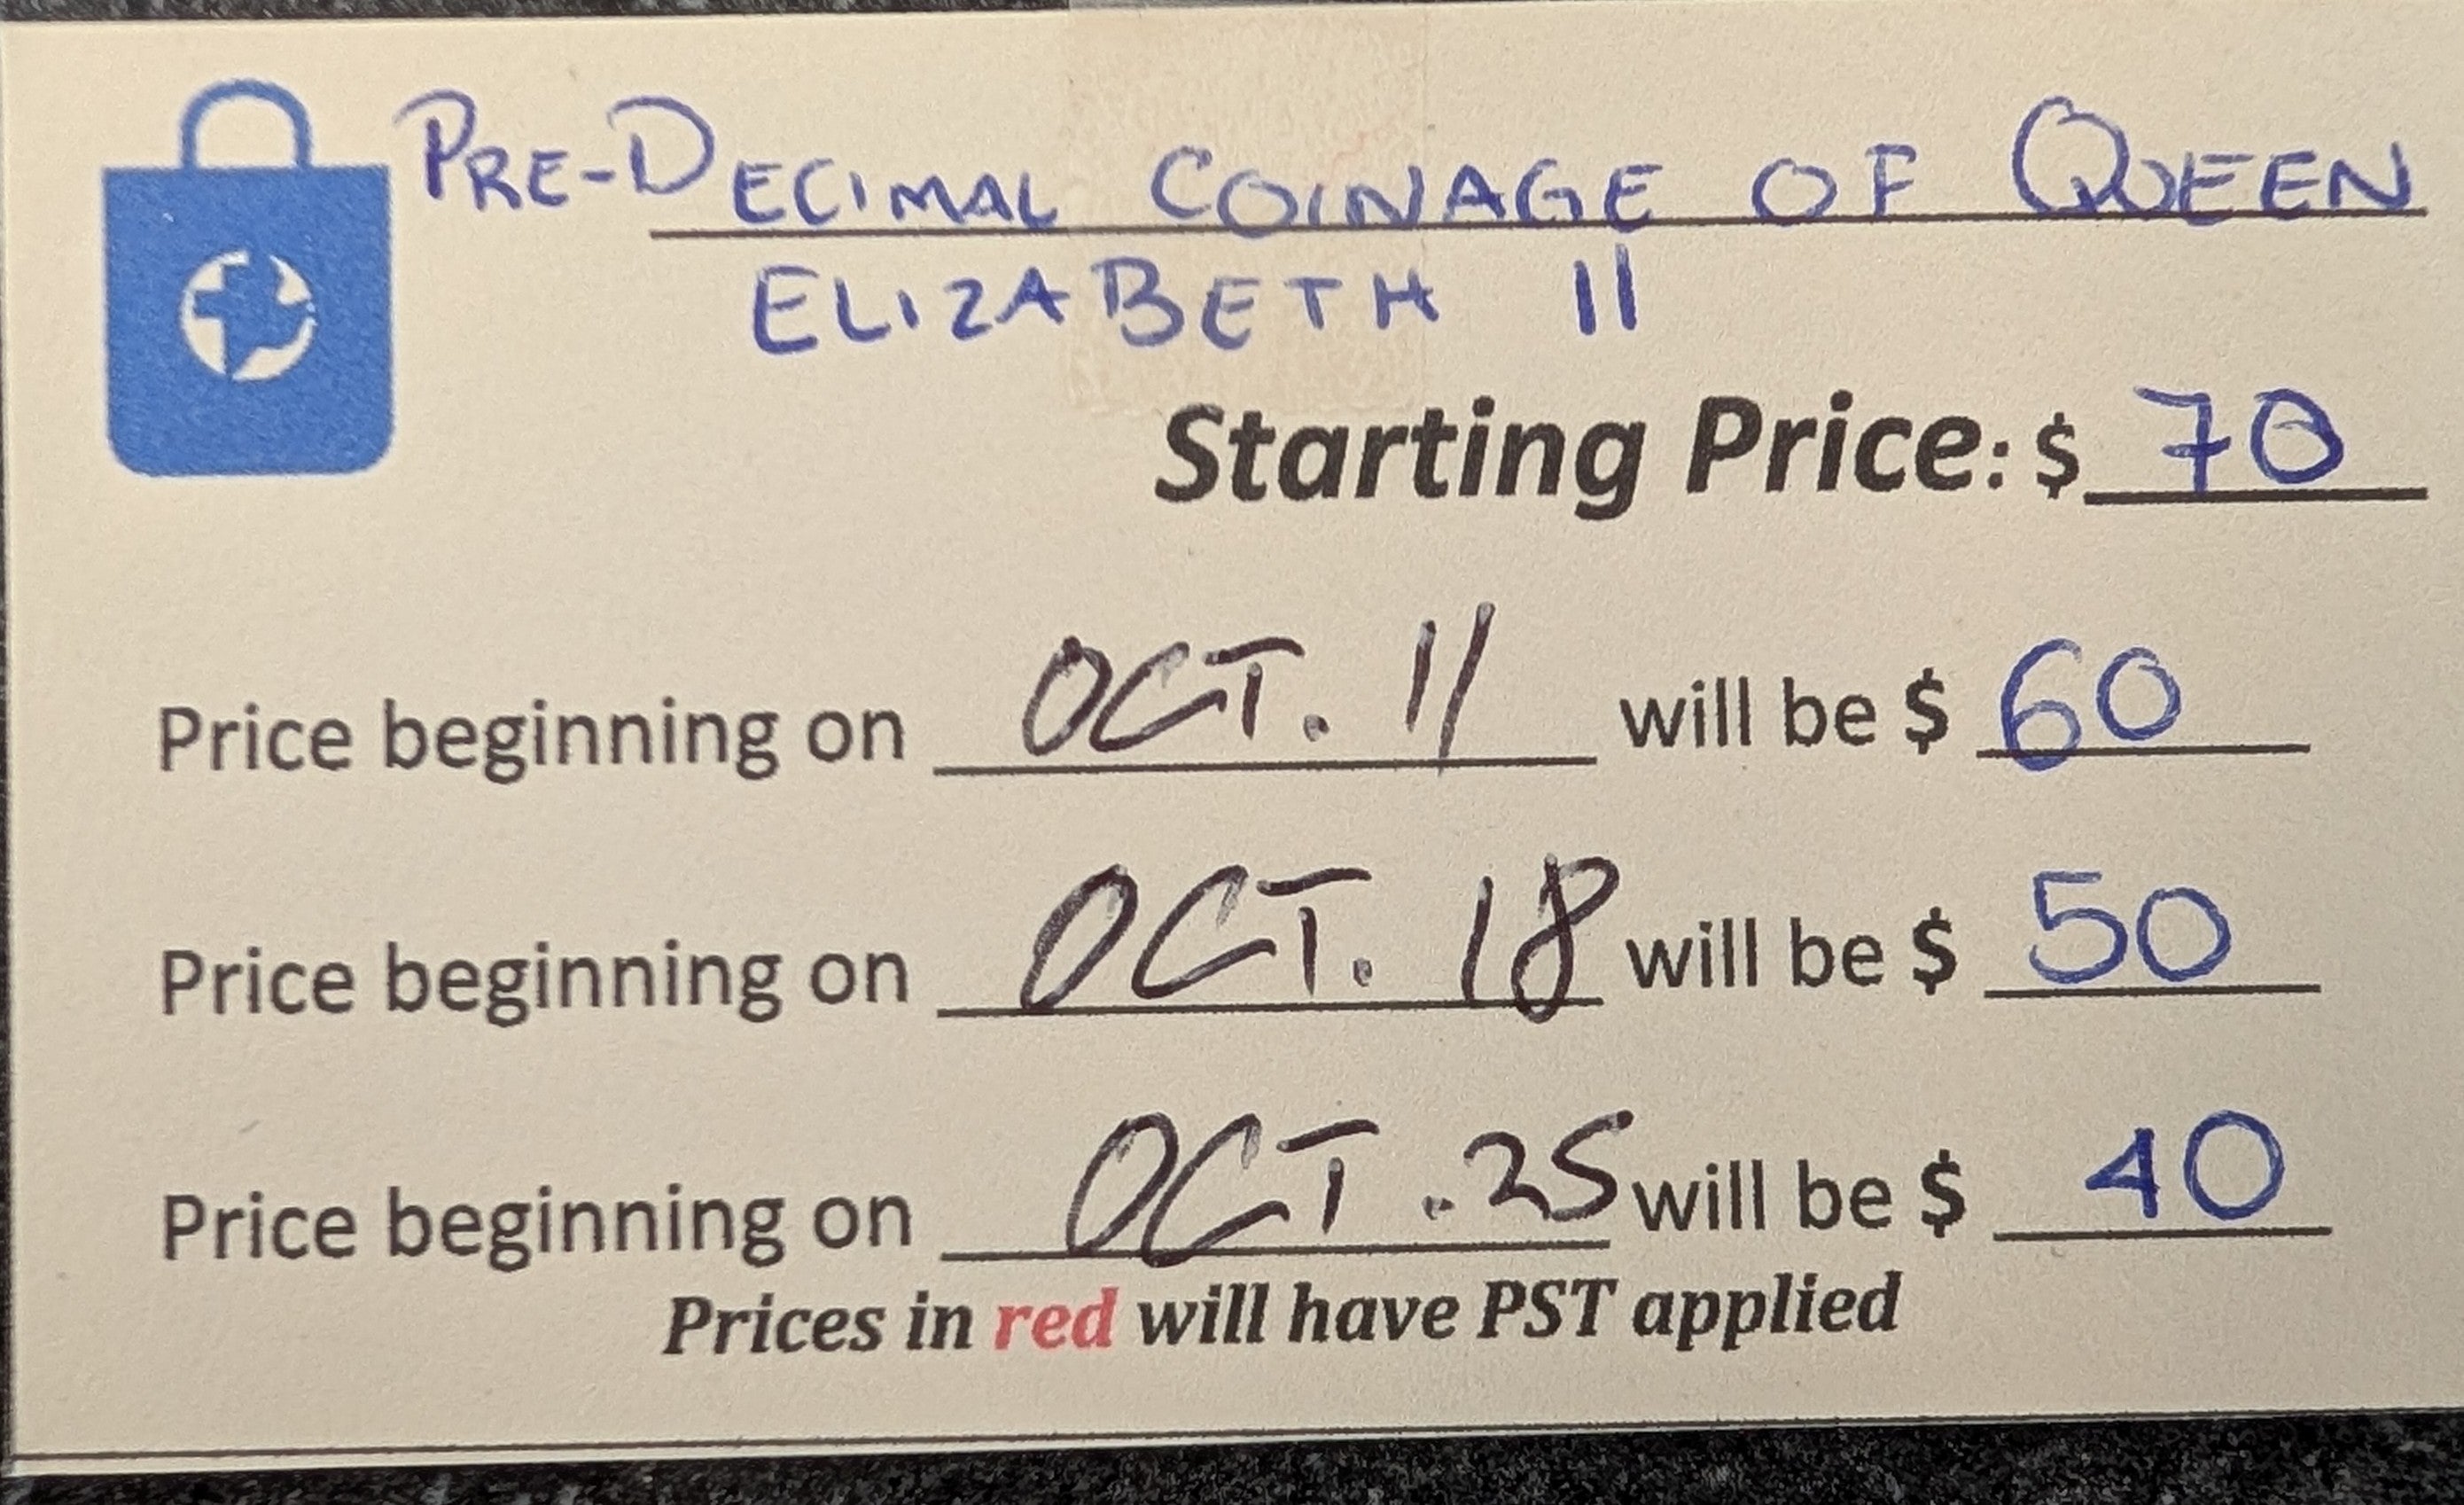 PRE-DECIMAL COINAGE OF QUEEN
ELIZABETH II
Starting Price: $ 70
Price beginning on OCT. 11 will be $ 60
Price beginning on OCT. 18 will be $ 50
Price beginning on OCT. 25 will be $ 40
Prices in red will have PST applied